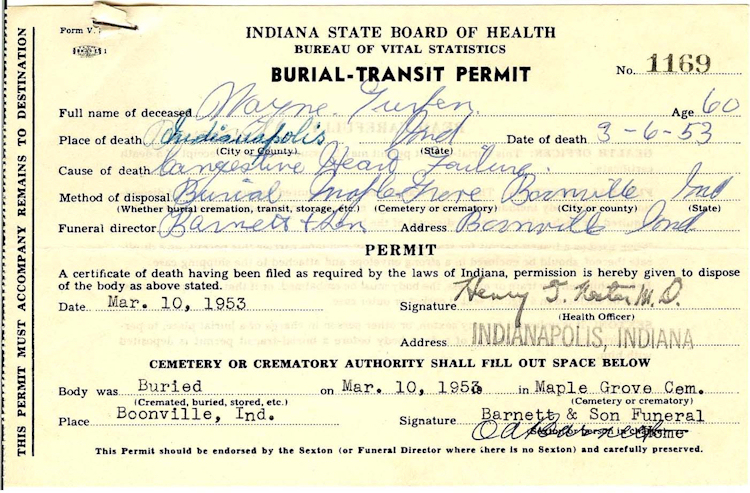 Form V.
INDIANA STATE BOARD OF HEALTH
BUREAU OF VITAL STATISTICS
BURIAL-TRANSIT PERMIT
No. 1169
Full name of deceased Wayne Age 60
Place of death Indianapolis Ind Date of death 3-6-53
(City or County) (State)
Cause of death Congestive Heart Failure
Method of disposal Burial Maple Grove Boonville Ind
(Whether burial cremation, transit, storage, etc.) (Cemetery or crematory) (City or county) (State)
Funeral director Barnett & Son Address Boonville Ind
PERMIT
A certificate of death having been filed as required by the laws of Indiana, permission is hereby given to dispose
of the body as above stated.
Date Mar. 10, 1953 Signature Henry G. M.D.
(Health Officer)
Address INDIANAPOLIS, INDIANA
CEMETERY OR CREMATORY AUTHORITY SHALL FILL OUT SPACE BELOW
Body was Buried on Mar. 10, 1953 in Maple Grove Cem.
(Cremated, buried, stored, etc.) (Cemetery or crematory)
Place Boonville, Ind. Signature Barnett & Son Funeral
Home
This Permit should be endorsed by the Sexton (or Funeral Director where there is no Sexton) and carefully preserved.
THIS PERMIT MUST ACCOMPANY REMAINS TO DESTINATION